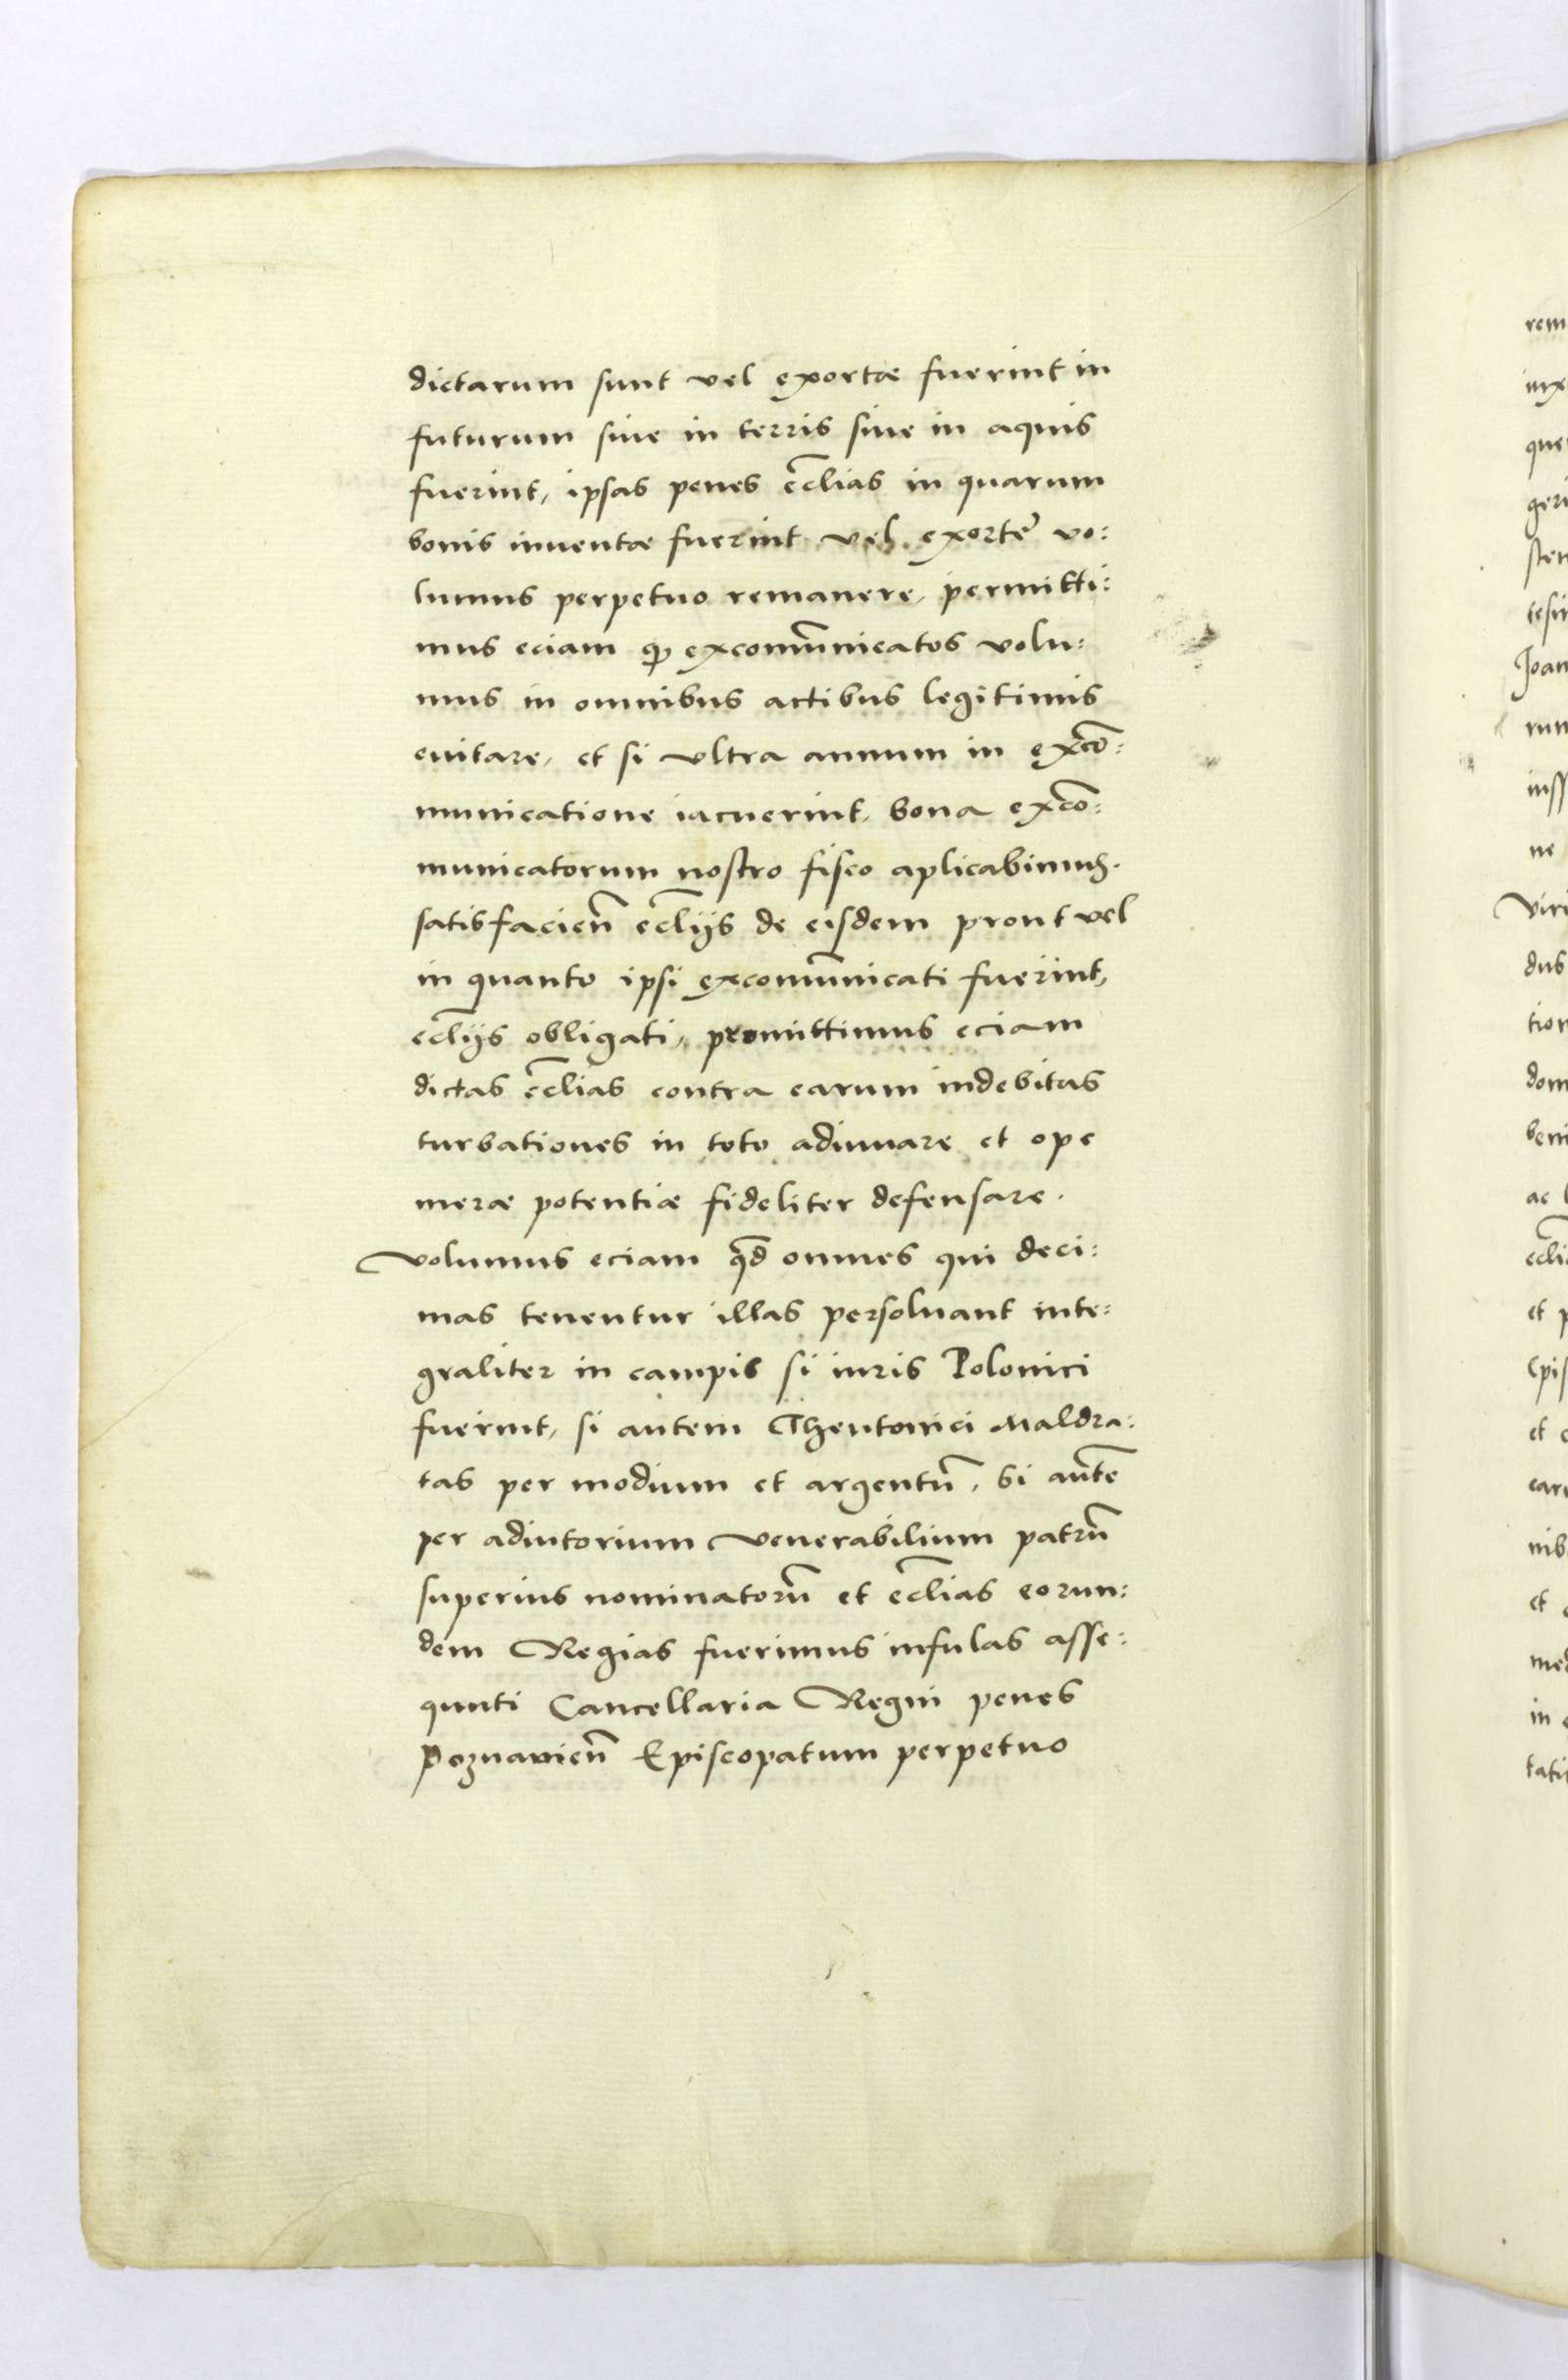 dictarum sunt vel exortæ fuerint in
futurum siue in terris siue in aquis
fuerint, ipsas penes ecc̄lias in quarum
bonis inuentæ fuerint vel exorte vo:
lumus perpetuo remanere, permitti:
mus eciam ꝙ excomūnicatos volu:
mus in omnibus actibus legitimis
euitare, et si vltra annum in excō:
municatione iacuerint, bona excō:
municatorum nostro fisco aplicabimus.
satisfacien̄ ecl̄ijs de eisdem prout vel
in quanto ipsi excomūnicati fuerint,
ecl̄ijs obligati, promittimus eciam
dictas ecl̄ias contra earum indebitas
turbationes in toto adiuuare et ope
meræ potentiæ fideliter defensare.
Volumus eciam qd̄ omnes qui deci:
mas tenentur illas persoluant inte:
graliter in campis si iuris Polonici
fuerint, si autem Theutonici Maldra:
tas per modium et argentū, Si aūte
per adiutorium Venerabilium patrū
superius nominatorū et ecl̄ias eorun:
dem Regias fuerimus infulas asse:
quuti Cancellaria Regni penes
Poznanien̄ Episcopatum perpetuo
rem
que
geri
sten
Joan
ne
Viri
dus
tion
dom
beni
ac
ecli
et p
Epis
et
nib
et
med
in
tati